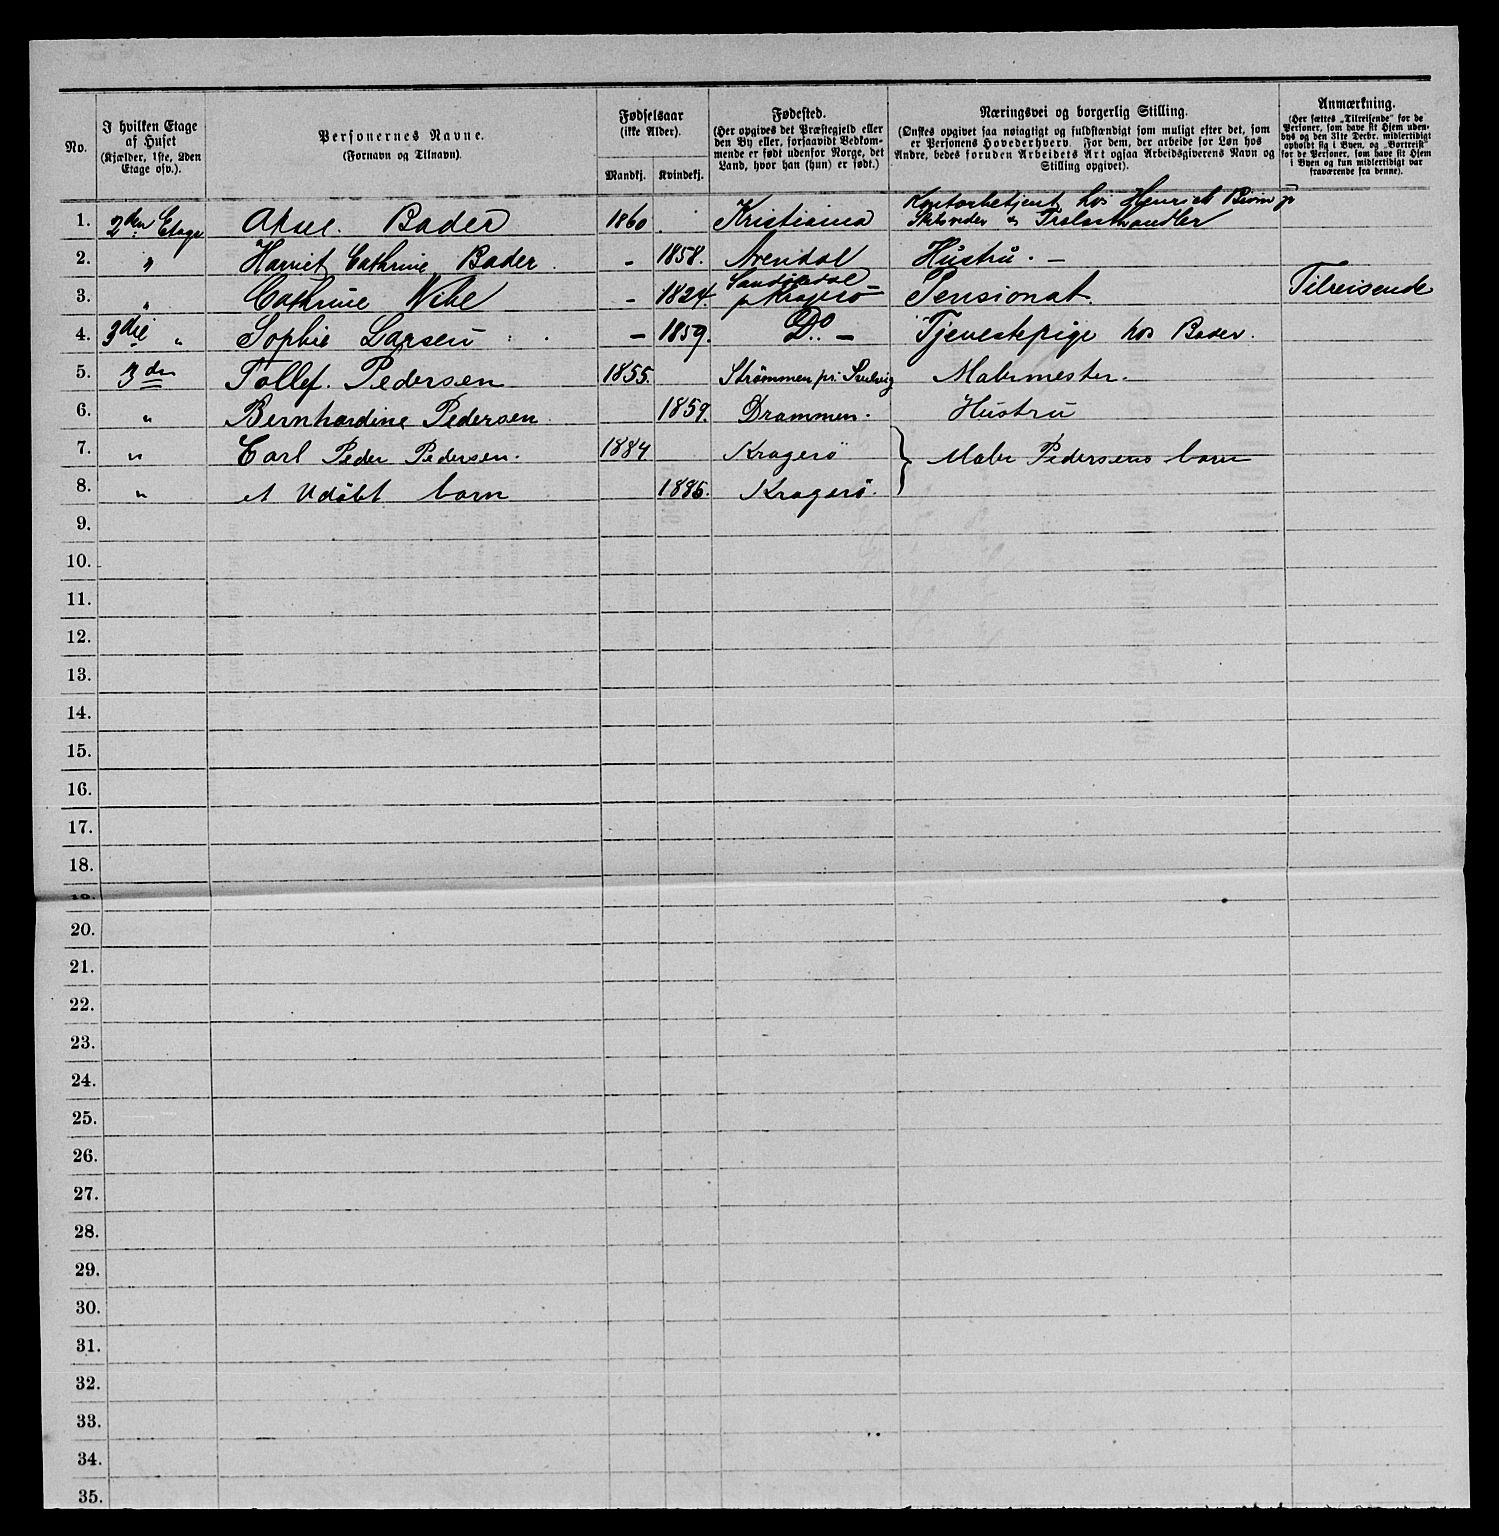 No.
I hvilken Etage
af Huset
(Kjælder, 1ste, 2den
Etage osv.).
Personernes Navne.
(Fornavn og Tilnavn).
Fødselsaar
(ikke Alder).
Mandkj. Kvindekj.
Fødested.
(Her opgives det Præstegjeld eller
den By eller, forsaavidt Vedkom-
mende er født udenfor Norge, det
Land, hvor han (hun) er født.)
Næringsvei og borgerlig Stilling.
(Ønskes opgivet saa nøiagtigt og fuldstændigt som muligt efter det, som
er Personens Hovederhverv. For dem, der arbeide for Løn hos
Andre, bedes foruden Arbeidets Art ogsaa Arbeidsgiverens Navn og
Stilling opgivet).
Anmærkning.
(Her sættes „Tilreisende" for de
Personer, som have sit Hjem uden-
bys og den 31te Decbr. midlertidigt
opholdt sig i Byen, og „Bortreist"
for de Personer, som have sit Hjem
i Byen og kun midlertidigt var
fraværende fra denne).
Kontorbetjent hos Henrik Biørn jr
1. 2den Etage Aksel. Bader 1860 Kristiania & Trælasthandler
2. " Harriet Cathrine Bader. – 1858. Arendal Hustru. –
Sandøkedal –
3. " Cathrine Vibe – 1824. p Kragerø Pensionat. Tilreisende
4. 3die " Sophie Larsen – 1859. Do. – Tjenestepige hos Bader.
5. 3den Tollef. Pedersen 1855. Strømmen pr. Malermester.
6. " Bernhardine Pedersen 1859. Drammen. Hustru
7. " Carl Peder Pedersen. 1884 Kragerö } Maler Pedersens barn
8. " et Udøbt barn 1886. Kragerö.
9.
10.
11.
12.
13.
14.
15.
16.
17.
18.
19.
20.
21.
22.
23.
24.
25.
26.
27.
28.
29.
30.
31.
32.
33.
34.
35.